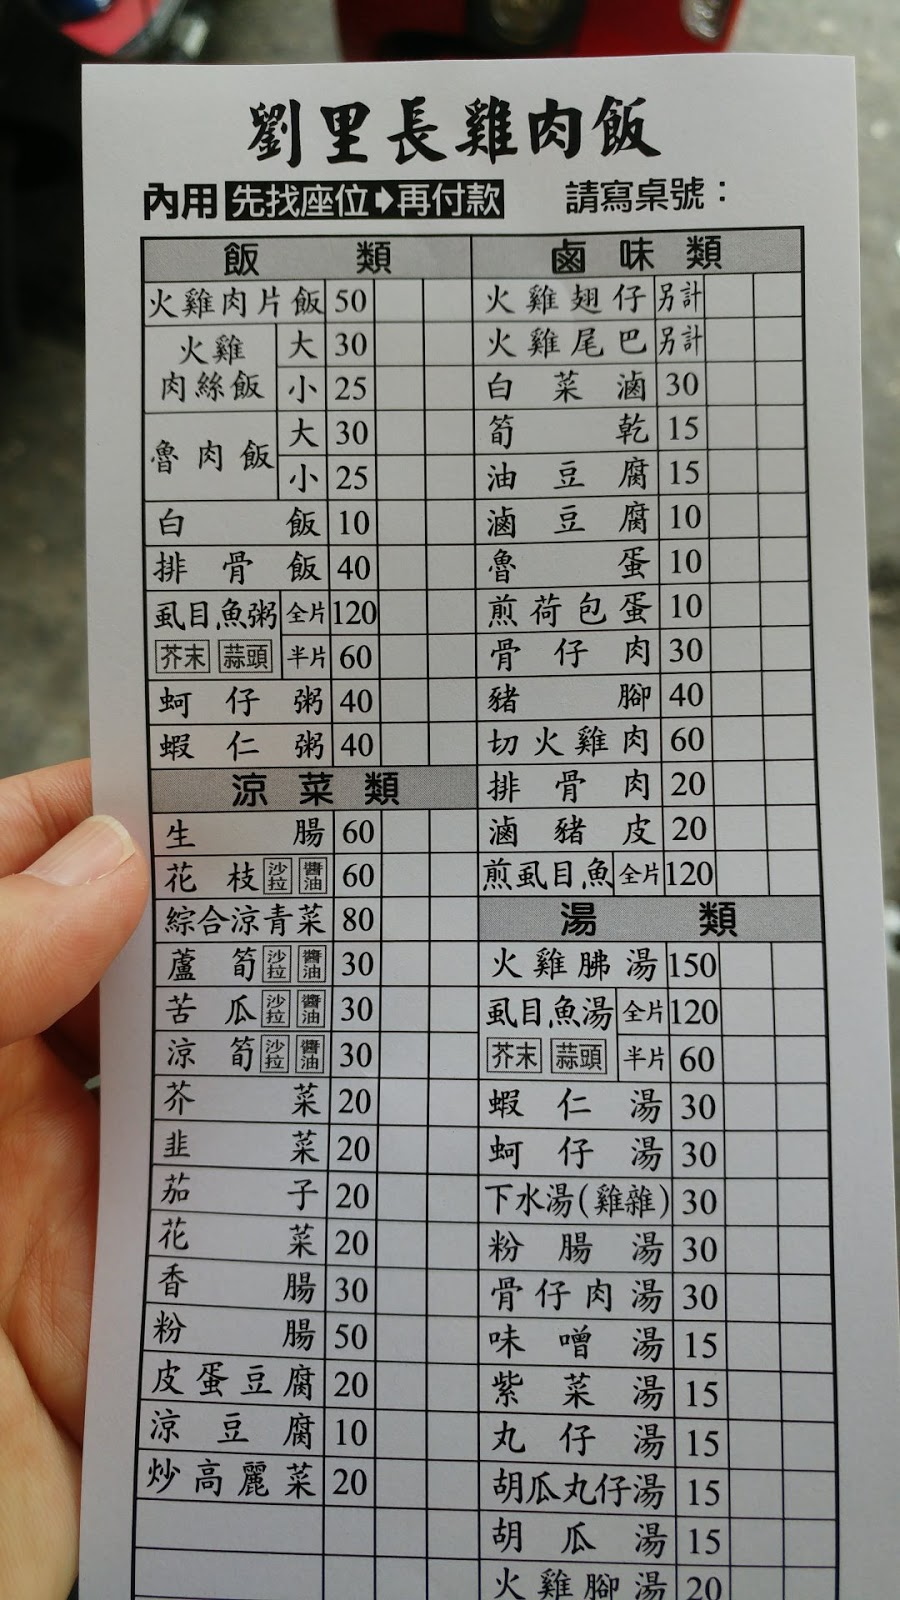 劉里長雞肉飯
內用 先找座位➧再付款 請寫桌號：
飯類
火雞肉片飯 50
火雞肉絲飯 大 30
小 25
魯肉飯 大 30
小 25
白飯 10
排骨飯 40
虱目魚粥 全片 120
芥末 蒜頭 半片 60
蚵仔粥 40
蝦仁粥 40
涼菜類
生腸 60
花枝 沙拉 醬油 60
綜合涼青菜 80
蘆筍 沙拉 醬油 30
苦瓜 沙拉 醬油 30
涼筍 沙拉 醬油 30
芥菜 20
韭菜 20
茄子 20
花菜 20
香腸 30
粉腸 50
皮蛋豆腐 20
涼豆腐 10
炒高麗菜 20
鹵味類
火雞翅仔 另計
火雞尾巴 另計
白菜滷 30
筍乾 15
油豆腐 15
滷豆腐 10
魯蛋 10
煎荷包蛋 10
骨仔肉 30
豬腳 40
切火雞肉 60
排骨肉 20
滷豬皮 20
煎虱目魚 全片 120
湯類
火雞胇湯 150
虱目魚湯 全片 120
芥末 蒜頭 半片 60
蝦仁湯 30
蚵仔湯 30
下水湯(雞雜) 30
粉腸湯 30
骨仔肉湯 30
味噌湯 15
紫菜湯 15
丸仔湯 15
胡瓜丸仔湯 15
胡瓜湯 15
火雞腳湯 20